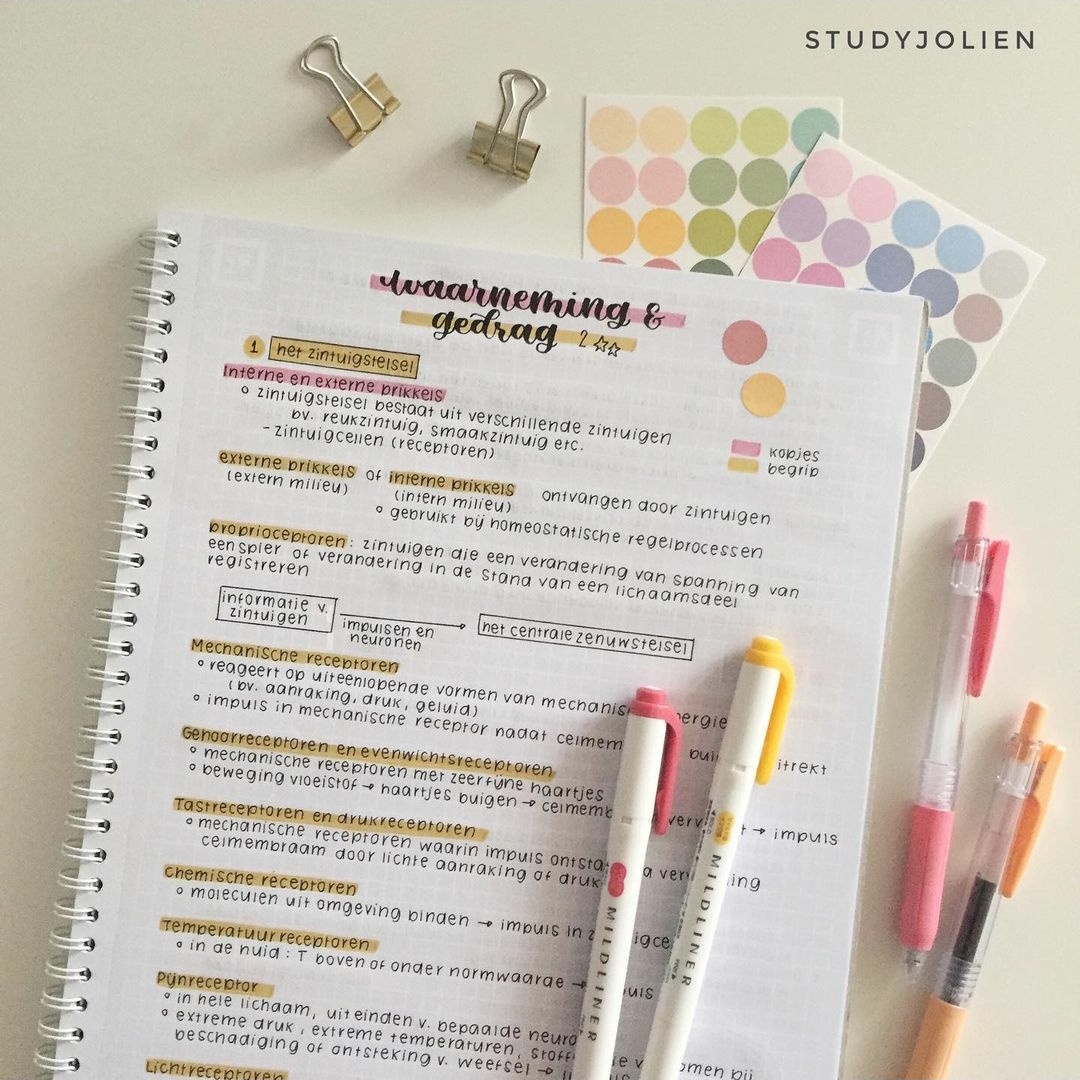 STUDYJOLIEN
waarneming &
gedrag
1 het zintuigstelsel
Interne en externe prikkels
zintuigstelsel bestaat uit verschillende zintuigen
bv. reukzintuig, smaakzintuig etc.
- zintuigcellen (receptoren)
kopjes
begrip
externe prikkels of interne prikkels ontvangen door zintuigen
(extern milieu) (intern milieu)
gebruikt bij homeostatische regelprocessen
proprioceptoren: zintuigen die een verandering van spanning van
een spier of verandering in de stand van een lichaamsdeel
registreren
informatie v.
zintuigen
impulsen en
neuronen
het centrale zenuwstelsel
Mechanische receptoren
reageert op uiteenlopende vormen van
(bv. aanraking, druk, geluid)
impuls in mechanische receptor nadat
Gehoorreceptoren en evenwichtsreceptoren
mechanische receptoren met zeer fijne haartjes
beweging vloeistof → haartjes buigen → → impuls
Tastreceptoren en drukreceptoren
mechanische receptoren waarin impuls
celmembraam door lichte aanraking of druk
chemische receptoren
moleculen uit omgeving binden → impuls in
Temperatuurreceptoren
in de huid: T boven of onder normwaarde →
Pijnreceptor
in hele lichaam, uiteinden v. bepaalde
extreme druk, extreme temperaturen,
beschadiging of ontsteking v. weefsel →
Lichtreceptoren
MILDLINER
MILDLINER